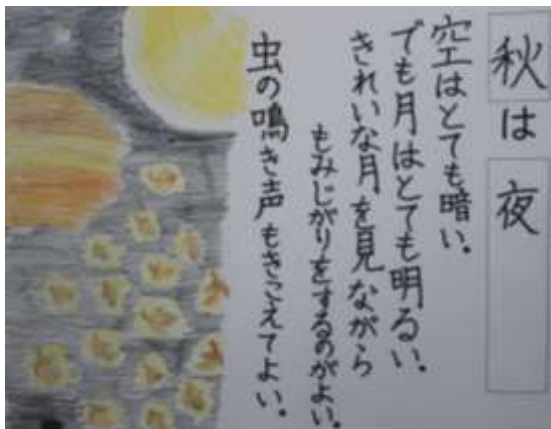 秋は夜
空はとても暗い。
でも月はとても明るい。
きれいな月を見ながら
もみじがりをするのがよい。
虫の鳴き声もきこえてよい。